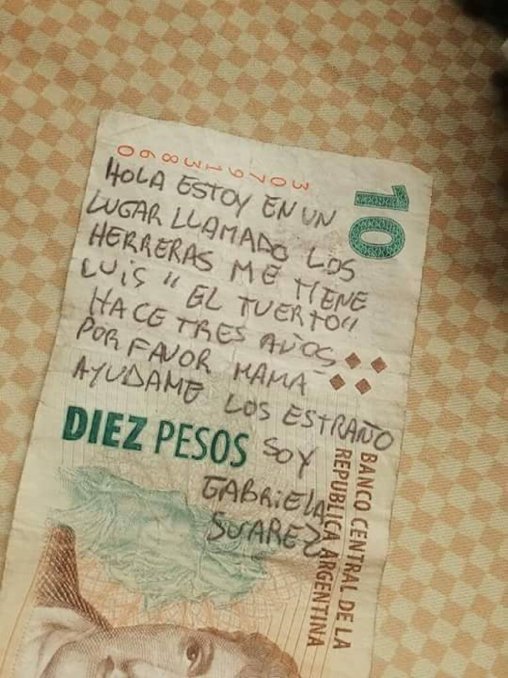 HOLA ESTOY EN UN
LUGAR LLAMADO LOS
HERRERAS ME TIENE
LUIS "EL TUERTO"
HACE TRES AÑOS
POR FAVOR MAMA
AYUDAME LOS ESTRAÑO
SOY
GABRIELA
SUAREZ
30791386
10
DIEZ PESOS
BANCO CENTRAL DE LA
REPUBLICA ARGENTINA